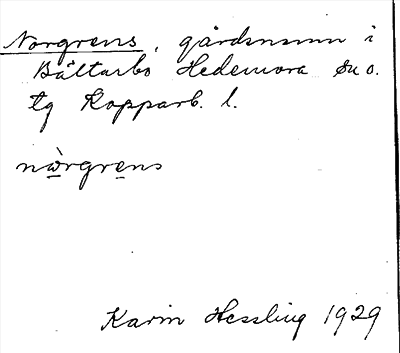 Norgrens, gårdsnamn i
Bältarbo Hedemora sn o.
tg Kopparb. l.
nὼrgrens
Karin Hessling 1929